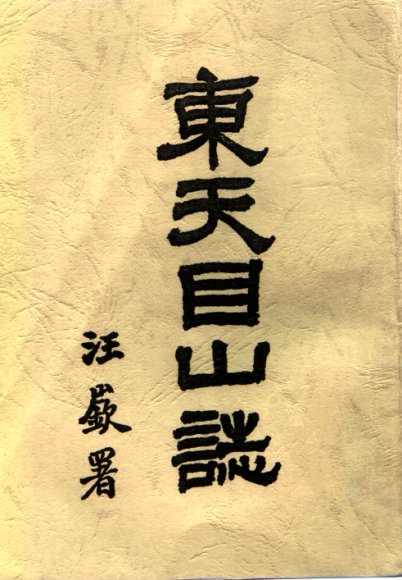 東天目山誌
汪嶔署